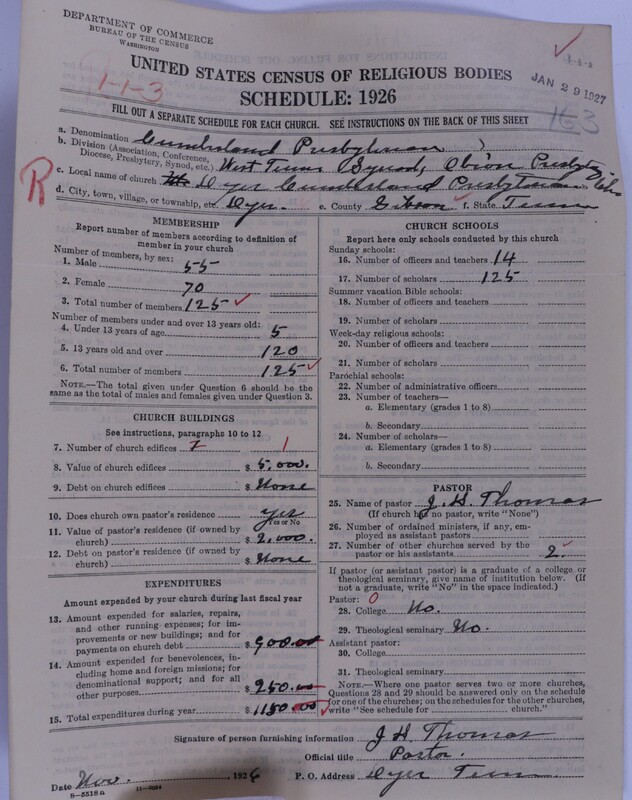 DEPARTMENT OF COMMERCE
BUREAU OF THE CENSUS
WASHINGTON
JAN 29 1927
1-1-3
163
UNITED STATES CENSUS OF RELIGIOUS BODIES
SCHEDULE: 1926
FILL OUT A SEPARATE SCHEDULE FOR EACH CHURCH. SEE INSTRUCTIONS ON THE BACK OF THIS SHEET
R
a. Denomination Cumberland Presbyterian
b. Division (Association, Conference, Diocese, Presbytery, Synod, etc.) West Tenn Synod, Obion Presbytery
c. Local name of church Dyer Cumberland Presbyterian
d. City, town, village, or township, etc. Dyer. e. County Gibson f. State Tenn
MEMBERSHIP
Report number of members according to definition of
member in your church
Number of members, by sex:
1. Male 55
2. Female 70
3. Total number of members 125
Number of members under and over 13 years old:
4. Under 13 years of age 5
5. 13 years old and over 120
6. Total number of members 125
NOTE.—The total given under Question 6 should be
same as the total of males and females given under Question 3.
CHURCH BUILDINGS
See instructions, paragraphs 10 to 12
7. Number of church edifices 1
8. Value of church edifices $ 5,000.
9. Debt on church edifices $ None
10. Does church own pastor's residence yes
Yes or No
11. Value of pastor's residence (if owned by
church) $ 2,000.
12. Debt on pastor's residence (if owned by
church) $ None
EXPENDITURES
Amount expended by your church during last fiscal year
13. Amount expended for salaries, repairs,
and other running expenses; for im-
provements or new buildings; and for
payments on church debt $ 900.00
14. Amount expended for benevolences, in-
cluding home and foreign missions; for
denominational support; and for all
other purposes $ 250.00
15. Total expenditures during year $ 1150.00
CHURCH SCHOOLS
Report here only schools conducted by this church
Sunday schools:
16. Number of officers and teachers 14
17. Number of scholars 125
Summer vacation Bible schools:
18. Number of officers and teachers
19. Number of scholars
Week-day religious schools:
20. Number of officers and teachers
21. Number of scholars
Parochial schools:
22. Number of administrative officers
23. Number of teachers—
a. Elementary (grades 1 to 8)
b. Secondary
24. Number of scholars—
a. Elementary (grades 1 to 8)
b. Secondary
PASTOR
25. Name of pastor J. H. Thomas
(If church has no pastor, write "None")
26. Number of ordained ministers, if any, em-
ployed as assistant pastors
27. Number of other churches served by the
pastor or his assistants 2.
If pastor (or assistant pastor) is a graduate of a college or
theological seminary, give name of institution below. (If
not a graduate, write "No" in the space indicated.)
Pastor: 0
28. College No.
29. Theological seminary No.
Assistant pastor:
30. College
31. Theological seminary
NOTE.—Where one pastor serves two or more churches,
Questions 28 and 29 should be answered only on the schedule
for one of the churches; on the schedules for the other churches,
write "See schedule for church."
Signature of person furnishing information J H Thomas
Official title Pastor.
Date Nov. 1926 P. O. Address Dyer Tenn
8-5518a 11-9084